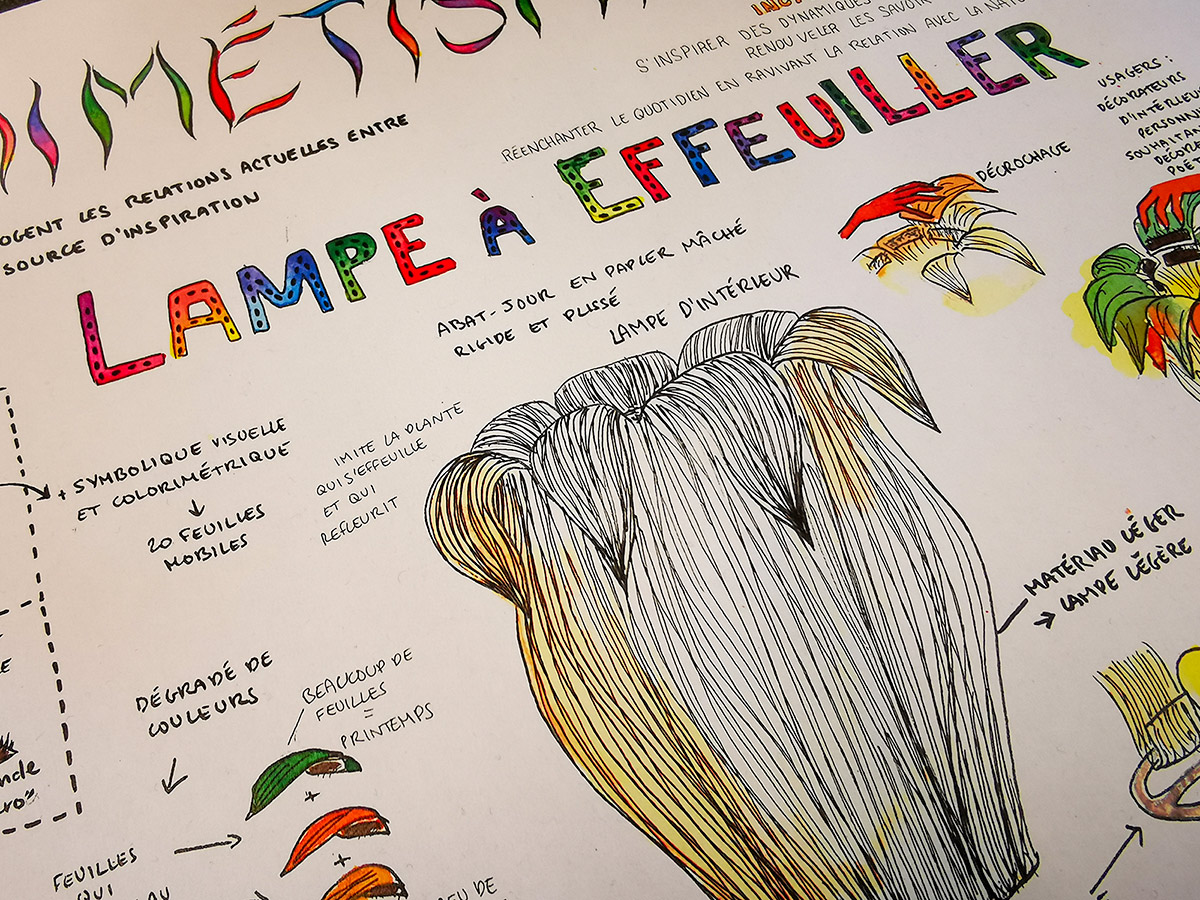 IMÉTIS
INC
S'INSPIRER DES DYNAMIQUES
RENOUVELER LES SAVOIR
RÉENCHANTER LE QUOTIDIEN EN RAVIVANT LA RELATION AVEC LA NATU
OGENT LES RELATIONS ACTUELLES ENTRE
SOURCE D'INSPIRATION
LAMPE À EFFEUILLER
USAGERS :
DÉCORATEURS
D'INTÉRIEU
PERSONN
SOUHAITA
DÉCOR
POÉ
DÉCROCHAGE
ABAT-JOUR EN PAPIER MÂCHÉ
RIGIDE ET PLISSÉ
LAMPE D'INTÉRIEUR
+ SYMBOLIQUE VISUELLE
ET COLORIMÉTRIQUE
20 FEUILLES
MOBILES
IMITE LA PLANTE
QUI S'EFFEUILLE
ET QUI
REFLEURIT
MATÉRIAU LÉGER
→ LAMPE LÉGÈRE
DÉGRADÉ DE
COULEURS
BEAUCOUP DE
FEUILLES
=
PRINTEMPS
+
+
FEUILLES
QUI
AU
EU DE
E
nde
ro"